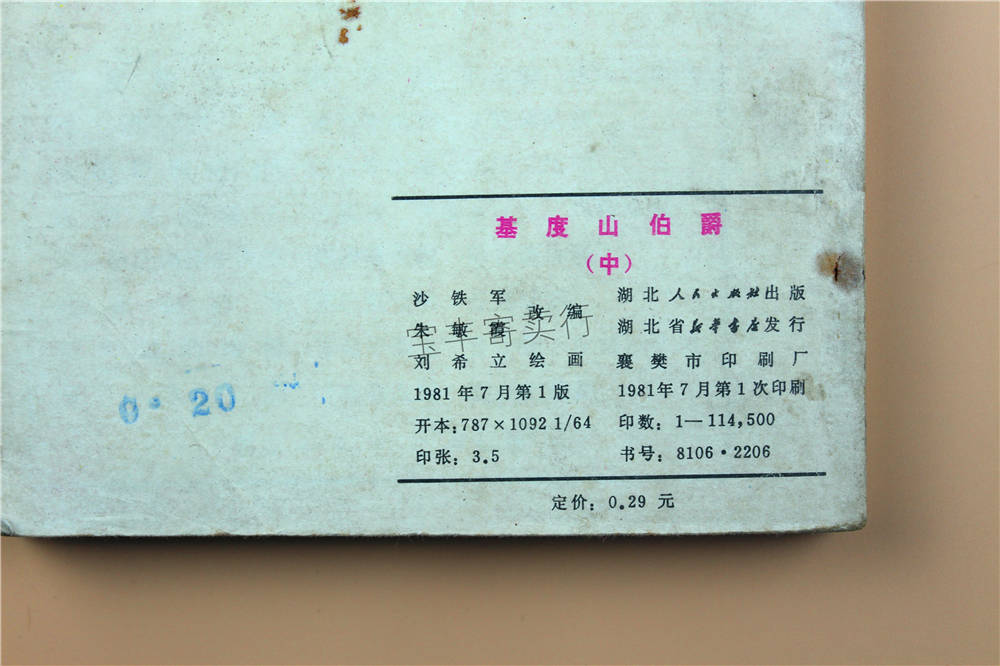 基度山伯爵
(中)
沙铁军
朱敏霞 改编
刘希立绘画
1981年7月第1版
开本:787×1092 1/64
印张:3.5
湖北人民出版社出版
湖北省新华书店发行
襄樊市印刷厂
1981年7月第1次印刷
印数:1—114,500
书号:8106·2206
定价:0.29元
0·20
宝丰寄卖行